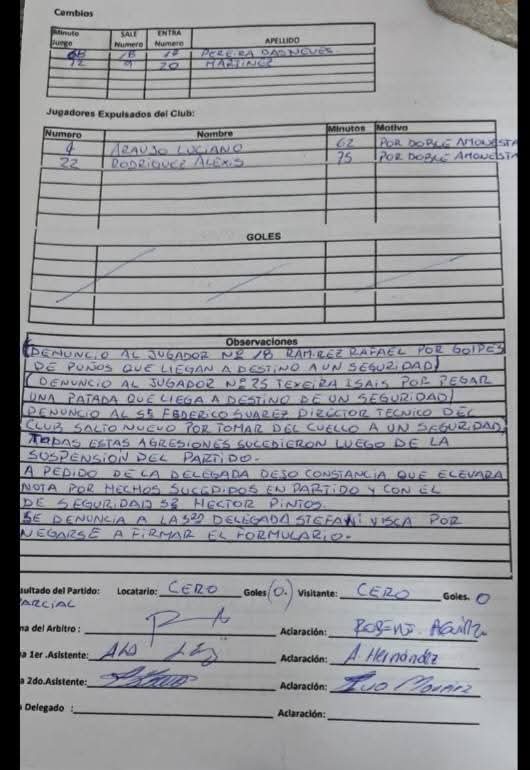 Cambios
Minuto Juego SALE Numero ENTRA Numero APELLIDO
68 18 PEREIRA DASNEVES
72 9 20 MARTINEZ
Jugadores Expulsados del Club:
Numero Nombre Minutos Motivo
4 ARAUJO LUCIANO 62 POR DOBLE AMONESTA
22 RODRIGUEZ ALEXIS 75 POR DOBLE AMONESTA
GOLES
Observaciones
(DENUNCIO AL JUGADOR Nº 18 RAMIREZ RAFAEL POR GOLPES
DE PUÑOS QUE LLEGAN A DESTINO A UN SEGURIDAD)
(DENUNCIO AL JUGADOR Nº 25 TEXEIRA ISAIS POR PEGAR
UNA PATADA QUE LLEGA A DESTINO DE UN SEGURIDAD)
DENUNCIO AL Sº FEDERICO SUAREZ DIRECTOR TECNICO DEL
CLUB SALTO NUEVO POR TOMAR DEL CUELLO A UN SEGURIDAD,
TODAS ESTAS AGRESIONES SUCEDIERON LUEGO DE LA
SUSPENSION DEL PARTIDO.-
A PEDIDO DE LA DELEGADA DEJO CONSTANCIA QUE ELEVARA
NOTA POR HECHOS SUCEDIDOS EN PARTIDO Y CON EL
DE SEGURIDAD Sº HECTOR PINTOS.
SE DENUNCIA A LA Sra DELEGADA STEFANI VISCA POR
NEGARSE A FIRMAR EL FORMULARIO.-
sultado del Partido: Locatario: CERO Goles (0.) Visitante: CERO Goles. 0
PARCIAL
na del Arbitro : Aclaración:
a 1er .Asistente: Aclaración: A. Hernández
a 2do.Asistente: Aclaración:
Delegado : Aclaración: